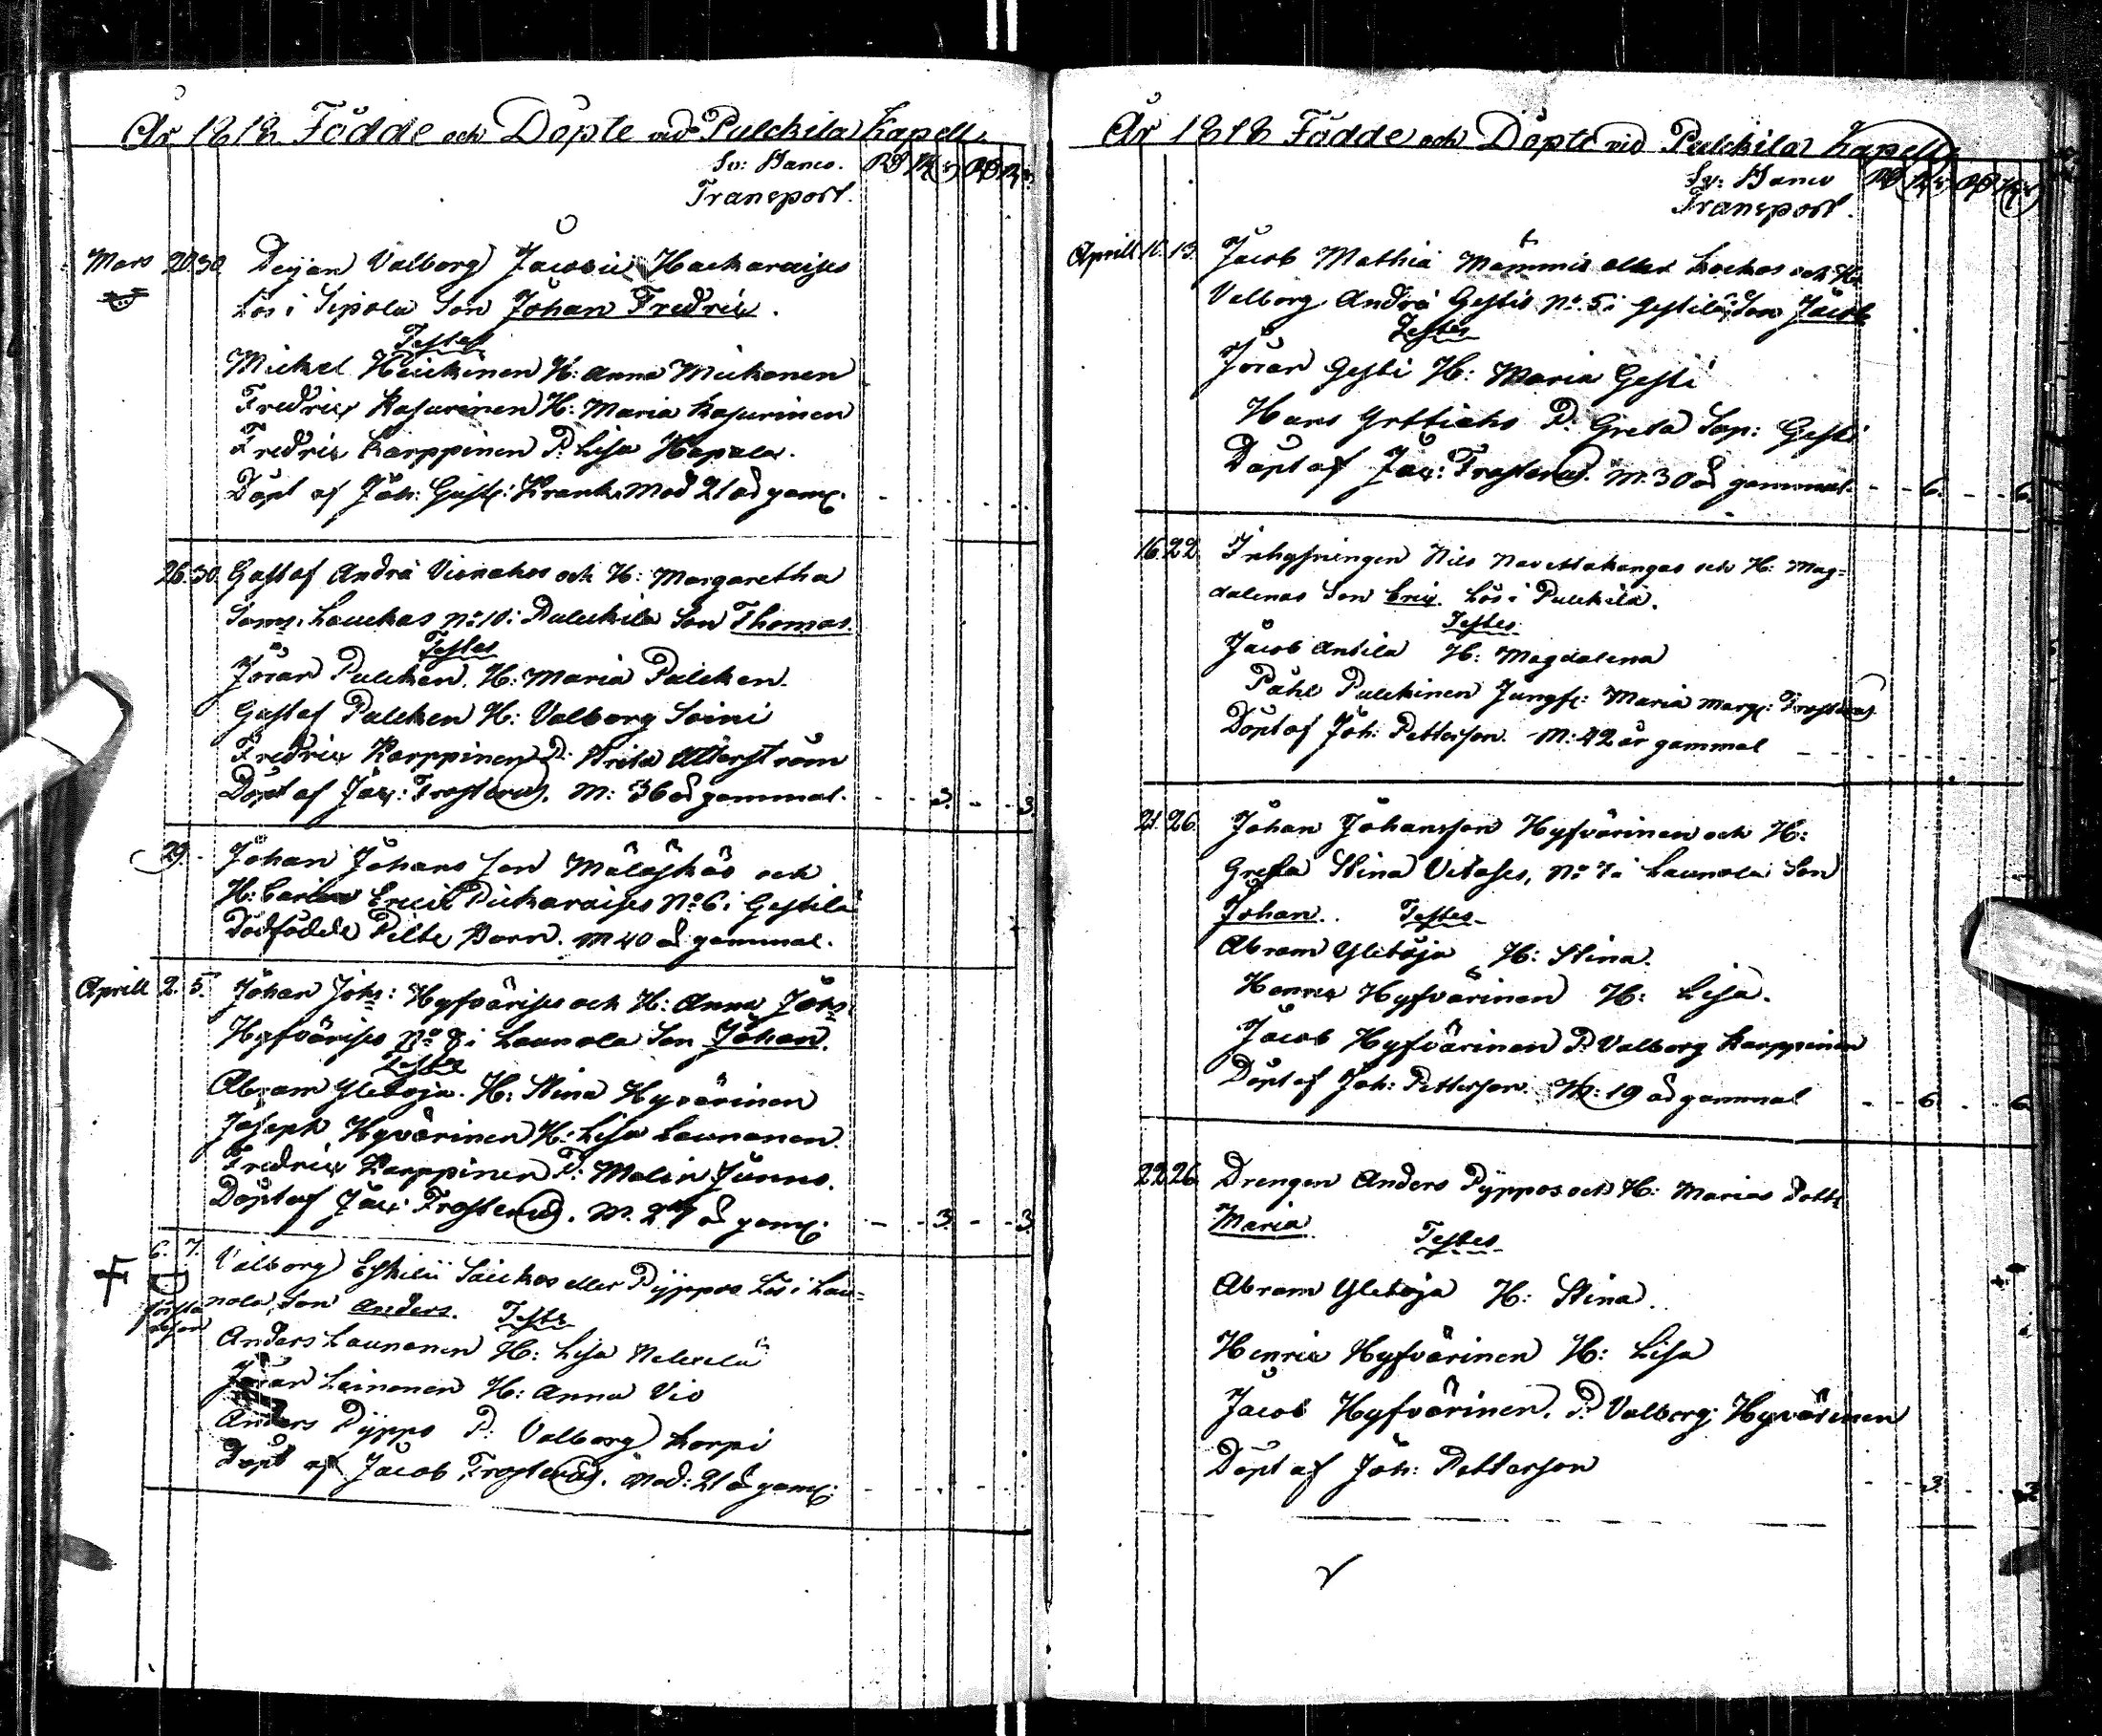 År 1818 Födde och Döpte vid Pulckila Kapell.
Sv: Banco. Rd
Transport.
Mars 20. 30. Deijan Valborg Jacobii Hackaraises
Lös i Sipola Son Johan Fredric.
Testes
Michel Heickinen H: Anna Mickonen
Fredric Kasurinen H: Maria Kasurinen
Fredric Karppinen P. Lisa Hapala.
Döpt af Joh: Gust: Kranck. Mod 21 åd gaml.
26. 30. Gustaf Andrä Vionahos och H: Margaretha
Sams. Lauckas No 10 i Pulckila Son Thomas.
Testes
Jöran Pulcken. H: Maria Pulcken.
Gustaf Pulcken H: Valborg Soini
Fredric Karppinen P: Brita Alterström
Döpt af Jac: Frosterus. M: 36 åd gammal. - - 3. - - 3.
29. Johan Johans son Mäläskäs och
H: Carin Ericii Pickaraises No 6 i Gestilä
Dödfödde Pilte Barn. M 40 åd gammal.
Aprill 2. 5. Johan Johs: Hyfvärises och H: Anna Johs:
Hyfvärises No 8 i Launola Son Johan.
Testes
Abram Yletoja. H: Stina Hyvärinen
Joseph Hyvärinen H: Lisa Launonen.
Fredric Karppinen P: Malin Junno.
Döpt af Jac: Frosterus. M. 27 åd gaml: - - 3. - - 3.
6. 7. Valborg Eskilii Säickes eller Pyppos Lös i Lau=
nola Son Anders. Testes
första
Anders Launonen H: Lisa
Jöran Leinonen H: Anna Vio
Anders Pyppo P. Valborg Korpi
Döpt af Jacob Frosterus. Mod: 21 åd gaml:
År 1818 Födde och Döpte vid Pulckila Kapell
Sv: Banco Rd
Transport.
Aprill 10. 13. Jacob Mathiä Mämmis eller Lockas och H:
Valborg Andrä Gestis No. 5 i Gestilä Son Jacob
Testes
Jöran Gesti H: Maria Gesti
Hans P: Greta Sop: Gesti
Döpt af Jac: Frosterus. M. 30 åd gammal. - - 6. - - 6.
16. 22. Inhysningen Nils Navettakangas och H: Mag=
dalenas Son Eric. Lös i Pulckila.
Testes
Jacob Antila H: Magdalena
Påhl Pulckinen Jungf: Maria Marg: Frosterus.
Döpt af Joh: Petterson. M: 42 år gammal
21. 26. Johan Johansson Hyfvärinen och H:
Greta Stina Vitases, No 7 i Launola Son
Johan. Testes
Abram Yletoja H: Stina.
Henric Hyfvärinen H: Lisa.
Jacob Hyfvärinen P. Valborg Karppinen
Döpt af Joh: Petterson. M: 19 åd gammal - - 6. - - 6.
22. 26. Drengen Anders Pyppos och H: Marias Dottr
Maria. Testes
Abram Yletoja H: Stina.
Henric Hyfvärinen H: Lisa
Jacob Hyfvärinen. P. Valborg Hyvärinen
Döpt af Joh: Petterson - - 3. - - 3.